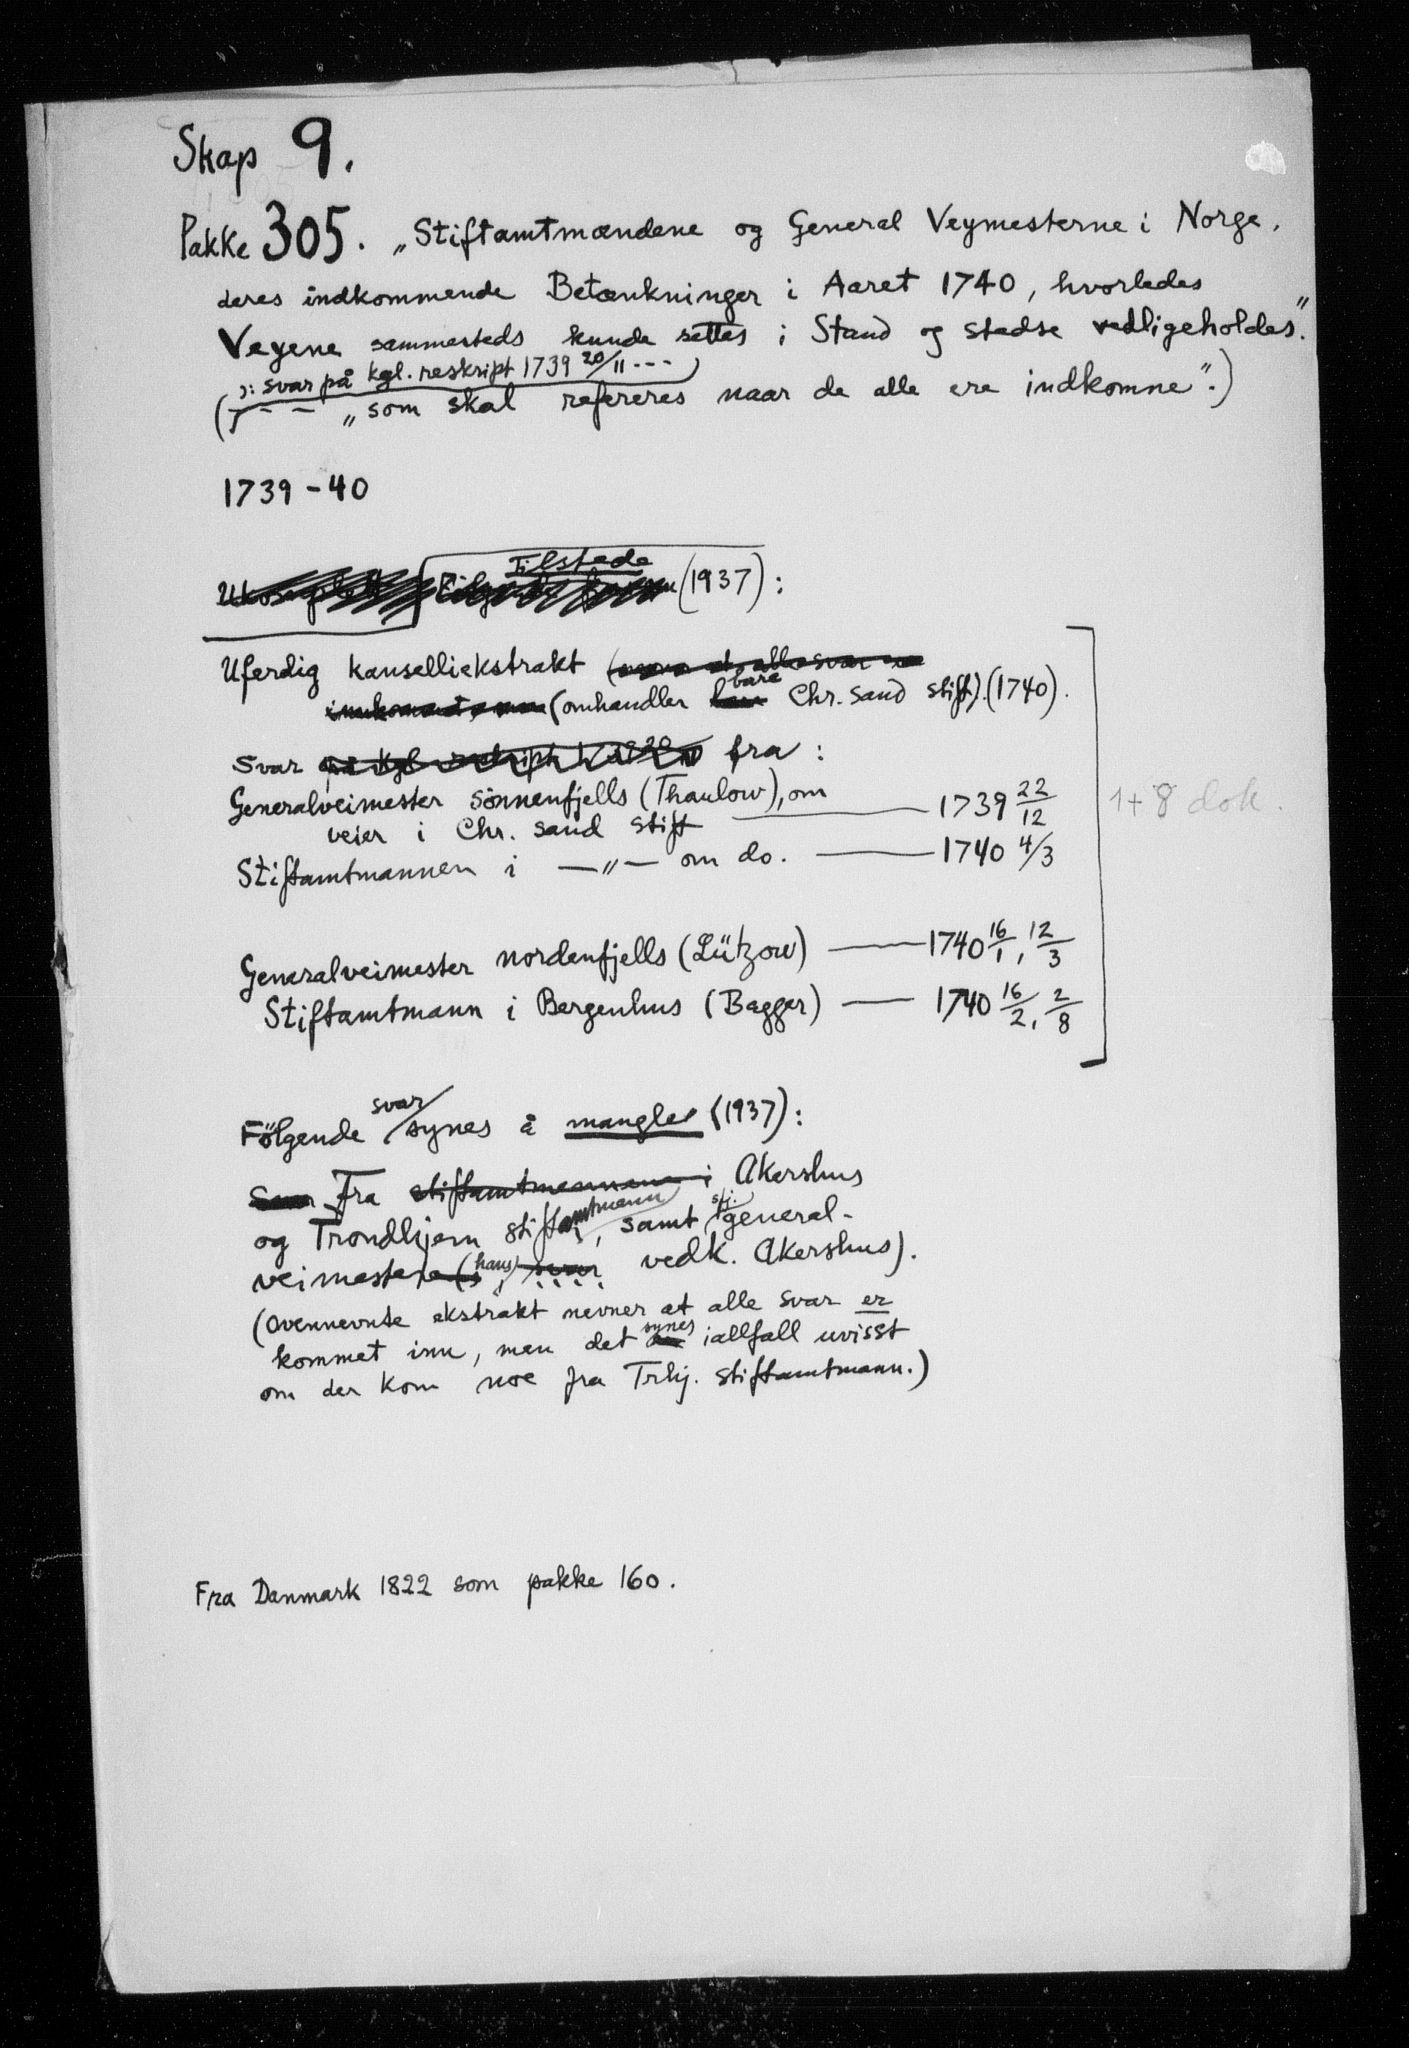 Skap 9.
Pakke 305. „Stiftamtmændene og General Veymesterne i Norge,
deres indkommende Betænkninger i Aaret 1740, hvorledes
Veyene sammesteds kunde settes i Stand og stedse vedligeholdes".
ɔ: svar på kgl. reskript 1739 20/11 ---
(--- „som skal refereres naar de alle ere indkomne".)
1739-40
Tilstede
(1937):
Uferdig kanselliekstrakt (
bare
(omhandler Chr. sand stift). (1740).
Svar på kgl. reskript fra:
Generalveimester sönnenfjells (Thaulow), om
veier i Chr. sand stift — 1739 22/12
1+8 dok.
Stiftamtmannen i —„— om do. — 1740 4/3
Generalveimester nordenfjells (Lützow) — 1740 16/1, 12/3
Stiftamtmann i Bergenhus (Bagger) — 1740 16/2, 2/8
svar
Følgende synes å mangle (1937):
Fra stiftamtmennene i Akershus
og Trondhjem stiftamtmann, samt stj. general-
veimester (hans svar vedk. Akershus).
(Ovennevnte ekstrakt nevner at alle svar er
kommet inn, men det synes iallfall uvisst
om der kom noe fra Trhj. stiftamtmann.)
Fra Danmark 1822 som pakke 160.